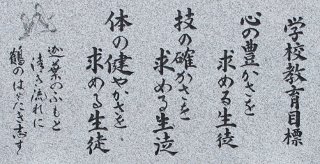 学校教育目標
心の豊かさを
求める生徒
技の確かさを
求める生徒
体の健やかさを
求める生徒
迦葉のふもと
清き流れに
鶴のはばたき志す